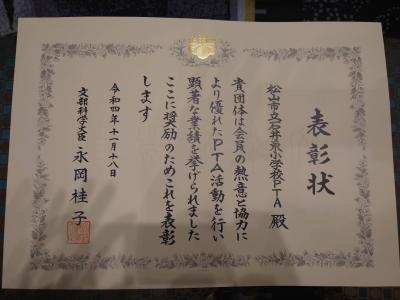 表彰状
松山市立石井東小学校PTA 殿
貴団体は会員の熱意と協力に
より優れたPTA活動を行い
顕著な業績を挙げられました
ここに奨励のためこれを表彰
します
令和四年十一月十八日
文部科学大臣 永岡桂子